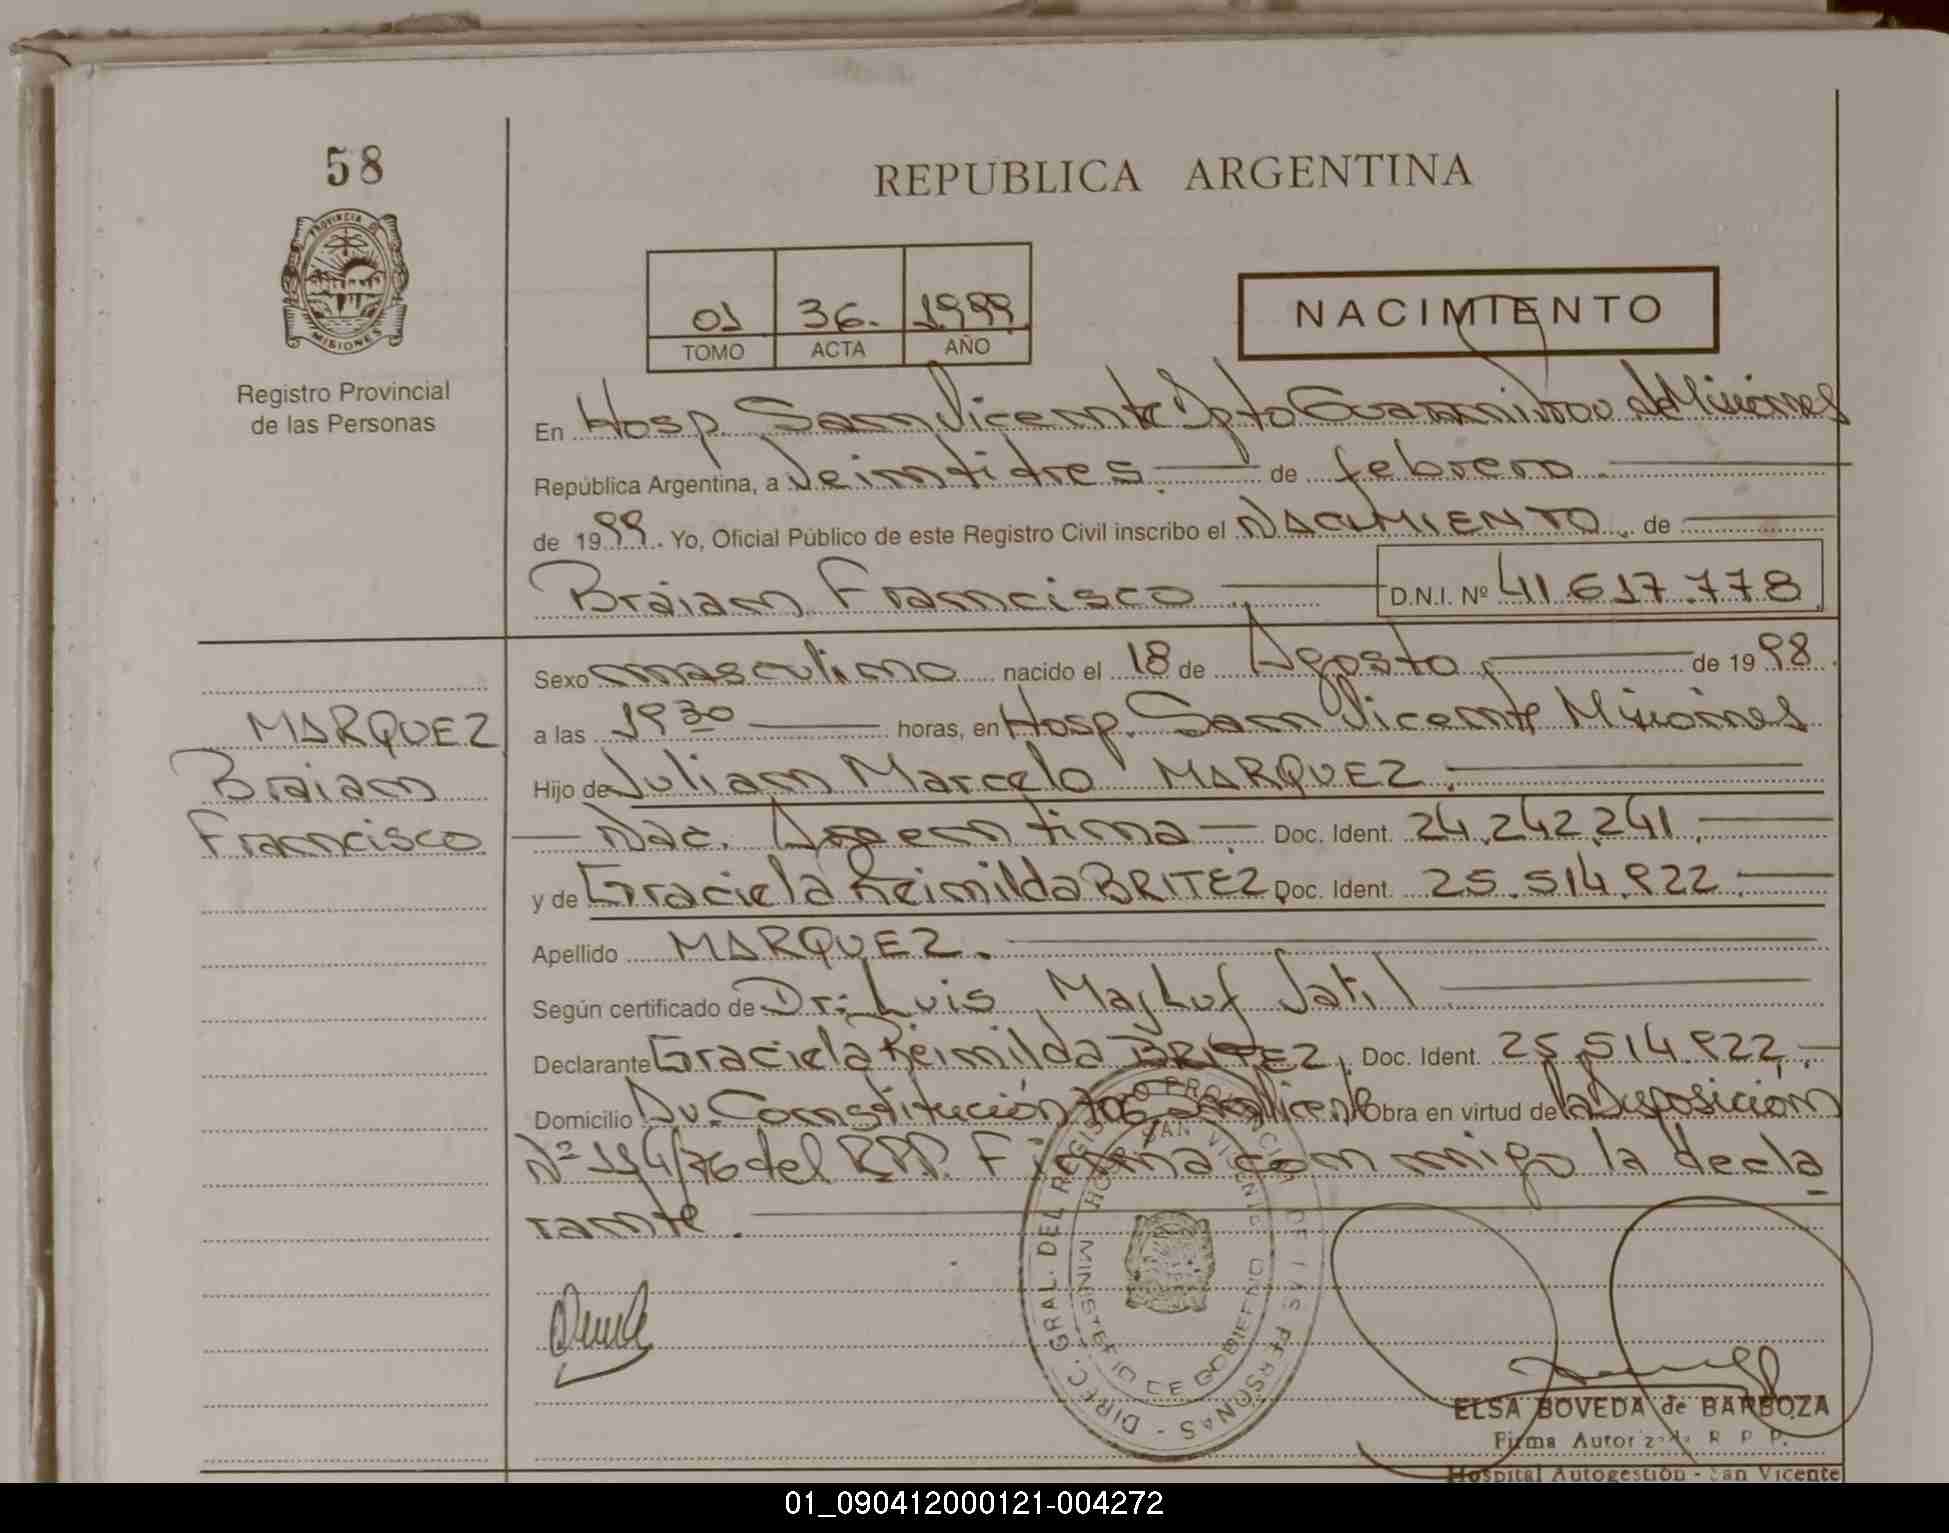 58
REPUBLICA ARGENTINA
PROVINCIA DE
MISIONES
Registro Provincial
de las Personas
01 36. 1999
TOMO ACTA AÑO
NACIMIENTO
En Hosp. San Vicente Dpto Guaraní Prov de Misiones
República Argentina, a Veintitres de febrero
de 1999. Yo, Oficial Público de este Registro Civil inscribo el NACIMIENTO de
Braian Francisco D.N.I. Nº 41.617.778
Sexo masculino nacido el 18 de Agosto de 1998.
MARQUEZ
Braian
Francisco
a las 19 30 horas, en Hosp. San Vicente Misiones
Hijo de Julian Marcelo MARQUEZ.
Nac. Argentina Doc. Ident. 24.242.241.
y de Graciela Reinilda BRITEZ Doc. Ident. 25.514.922.
Apellido MARQUEZ.
Según certificado de Dr: Luis Majluf Jatil
Declarante Graciela Reinilda BRITEZ, Doc. Ident. 25.514.922,
Domicilio Av. Constitución San Vicente Obra en virtud de la Disposición
Nº 194/76 del RPP. Firma con migo la decla
rante.
DIREC. GRAL. DEL REGISTRO PROVINCIAL DE LAS PERSONAS -
HOSP. SAN VICENTE
MINISTERIO DE GOBIERNO
ELSA BOVEDA de BARBOZA
Firma Autorizada R. P. P.
Hospital Autogestión - San Vicente
01_090412000121-004272